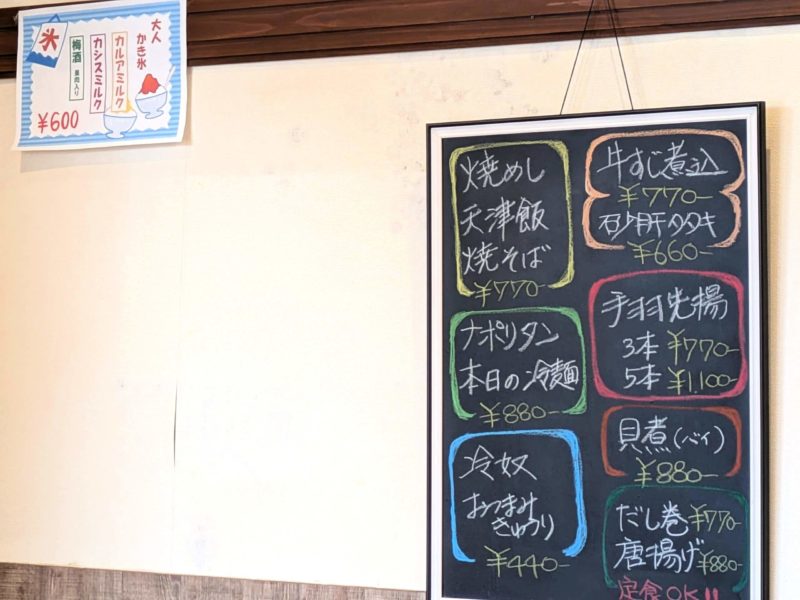 氷
大人
かき氷
カルアミルク
カシスミルク
梅酒 果肉入り
¥600
焼めし
天津飯
焼そば
¥770-
ナポリタン
本日の冷麺
¥880-
冷奴
おつまみ
きゅうり
¥440-
牛すじ煮込
¥770-
砂肝タタキ
¥660-
手羽先揚
3本 ¥770-
5本 ¥1,100-
貝煮(バイ)
¥880-
だし巻 ¥770-
唐揚げ ¥880-
定食OK!!